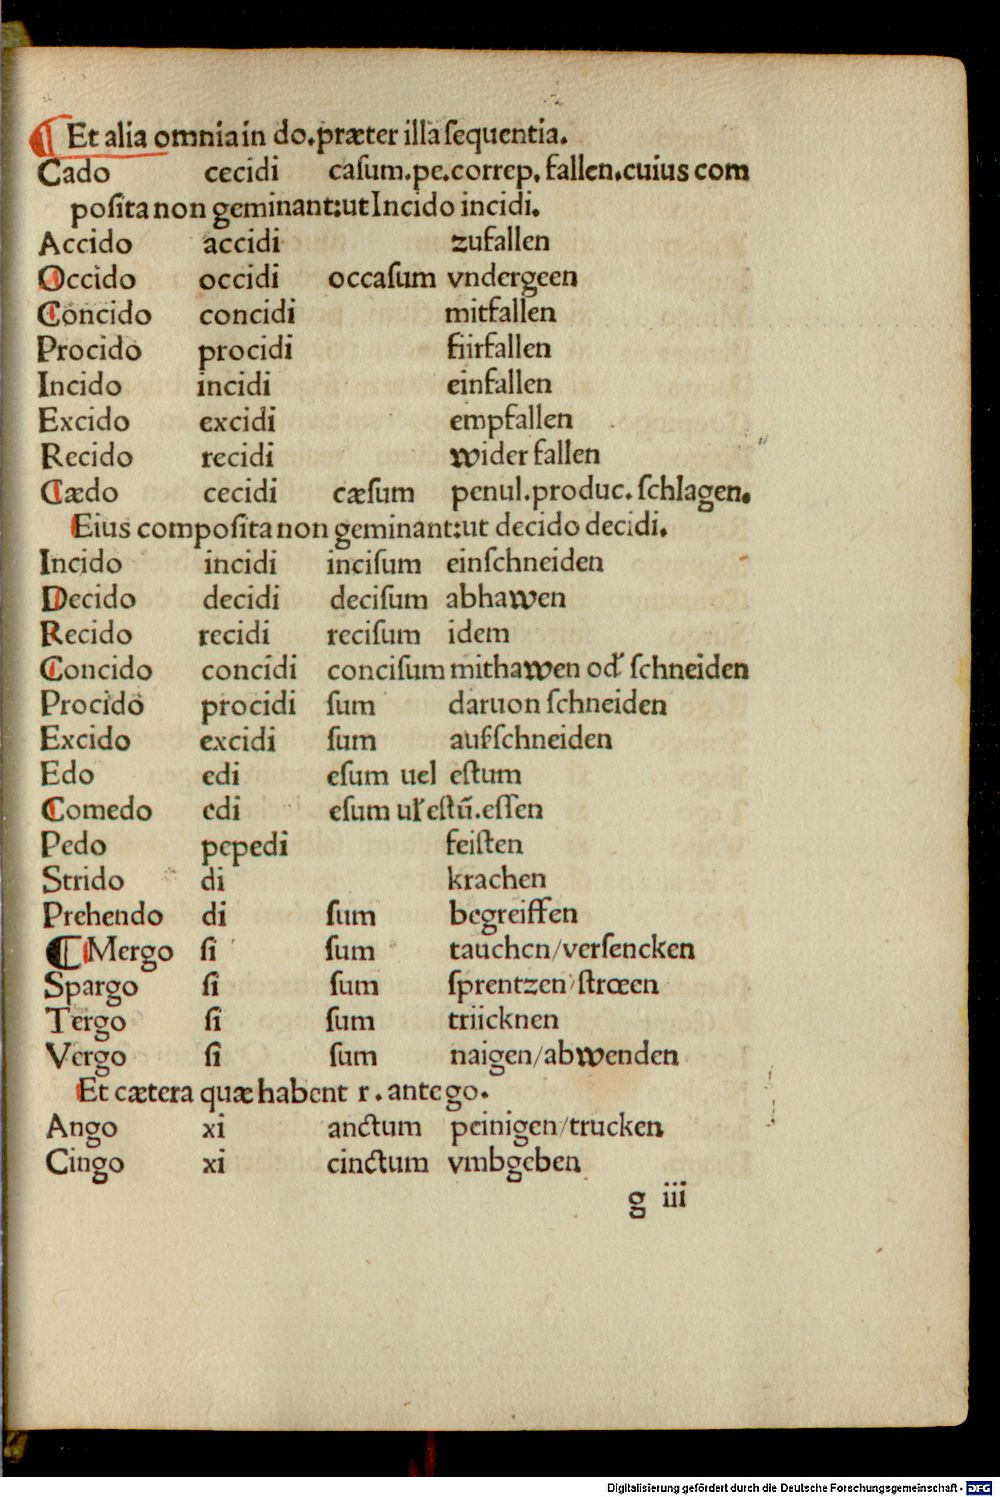 ¶ Et alia omnia in do. præter illa ſequentia.
Cado cecidi caſum. pe. correp. fallen. cuius com
poſita non geminant: ut Incido incidi.
Accido accidi zufallen
Occido occidi occaſum vndergeen
Concido concidi mitfallen
Procido procidi fiirfallen
Incido incidi einfallen
Excido excidi empfallen
Recido recidi wider fallen
Cædo cecidi cæſum penul. produc. ſchlagen.
Eius compoſita non geminant: ut decido decidi.
Incido incidi inciſum einſchneiden
Decido decidi deciſum abhawen
Recido recidi reciſum idem
Concido concidi conciſum mithawen od᷑ ſchneiden
Procido procidi ſum daruon ſchneiden
Excido excidi ſum aufſchneiden
Edo edi eſum uel eſtum
Comedo edi eſum uł eſtū. eſſen
Pedo pepedi feiſten
Strido di krachen
Prehendo di ſum begreiffen
¶ Mergo ſi ſum tauchen/verſencken
Spargo ſi ſum ſprentzen/ſtrœen
Tergo ſi ſum triicknen
Vergo ſi ſum naigen/abwenden
Et cætera quæ habent r. ante go.
Ango xi anctum peinigen/trucken
Cingo xi cinctum vmbgeben
g iii
Digitalisierung gefördert durch die Deutsche Forschungsgemeinschaft - DFG